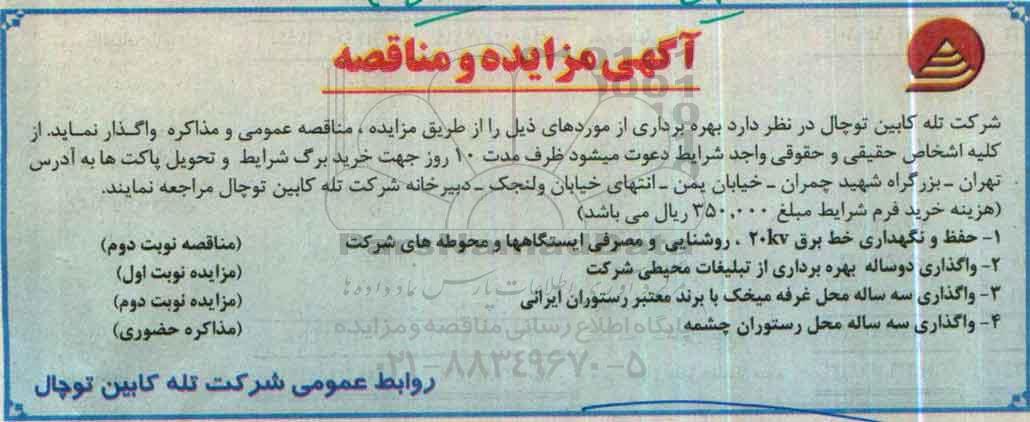 آگهی مزایده و مناقصه
شرکت تله کابین توچال در نظر دارد بهره برداری از موردهای ذیل را از طریق مزایده ، مناقصه عمومی و مذاکره واگذار نماید. از
کلیه اشخاص حقیقی و حقوقی واجد شرایط دعوت میشود ظرف مدت ۱۰ روز جهت خرید برگ شرایط و تحویل پاکت ها به آدرس
تهران ـ بزرگراه شهید چمران ـ خیابان یمن ـ انتهای خیابان ولنجک ـ دبیرخانه شرکت تله کابین توچال مراجعه نمایند.
(هزینه خرید فرم شرایط مبلغ ۳۵۰,۰۰۰ ریال می باشد)
۱- حفظ و نگهداری خط برق ۲۰kv ، روشنایی و مصرفی ایستگاهها و محوطه های شرکت (مناقصه نوبت دوم)
۲- واگذاری دوساله بهره برداری از تبلیغات محیطی شرکت (مزایده نوبت اول)
۳- واگذاری سه ساله محل غرفه میخک با برند معتبر رستوران ایرانی (مزایده نوبت دوم)
۴- واگذاری سه ساله محل رستوران چشمه (مذاکره حضوری)
پایگاه اطلاع رسانی مناقصه و مزایده
۰۲۱-۸۸۳۴۹۶۷۰-۵
روابط عمومی شرکت تله کابین توچال